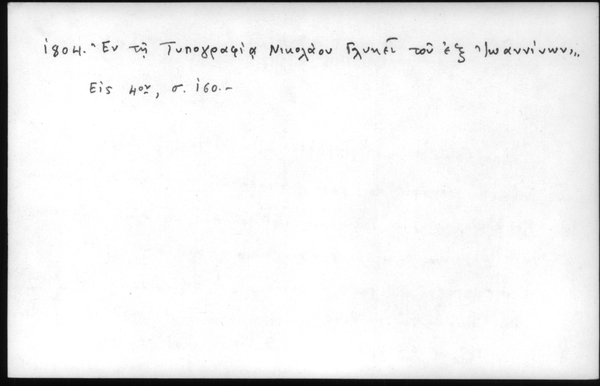 1804. Ἐν τῇ Τυπογραφίᾳ Νικολάου Γλυκεῖ τοῦ ἐξ Ἰωαννίνων».
Εἰς 4ον, σ. 160.-